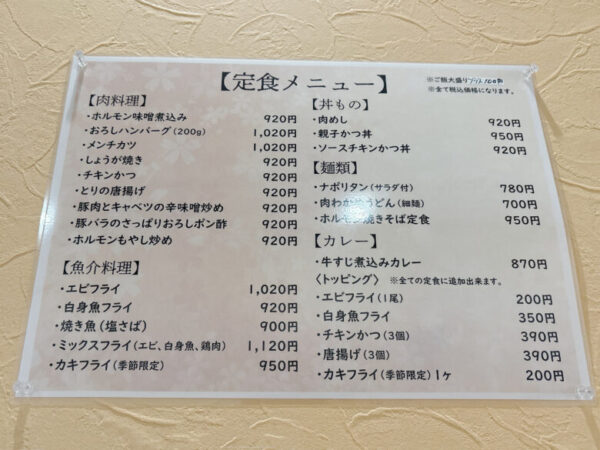 【定食メニュー】
※ご飯大盛りプラス100円
※全て税込価格になります。
【肉料理】
・ホルモン味噌煮込み 920円
・おろしハンバーグ(200g) 1,020円
・メンチカツ 1,020円
・しょうが焼き 920円
・チキンかつ 920円
・とりの唐揚げ 920円
・豚肉とキャベツの辛味噌炒め 920円
・豚バラのさっぱりおろしポン酢 920円
・ホルモンもやし炒め 920円
【魚介料理】
・エビフライ 1,020円
・白身魚フライ 920円
・焼き魚(塩さば) 900円
・ミックスフライ(エビ、白身魚、鶏肉) 1,120円
・カキフライ(季節限定) 950円
【丼もの】
・肉めし 920円
・親子かつ丼 950円
・ソースチキンかつ丼 920円
【麺類】
・ナポリタン(サラダ付) 780円
・肉わかめうどん(細麺) 700円
・ホルモン焼きそば定食 950円
【カレー】
・牛すじ煮込みカレー 870円
〈トッピング〉 ※全ての定食に追加出来ます。
・エビフライ(1尾) 200円
・白身魚フライ 350円
・チキンかつ(3個) 390円
・唐揚げ(3個) 390円
・カキフライ(季節限定)1ヶ 200円